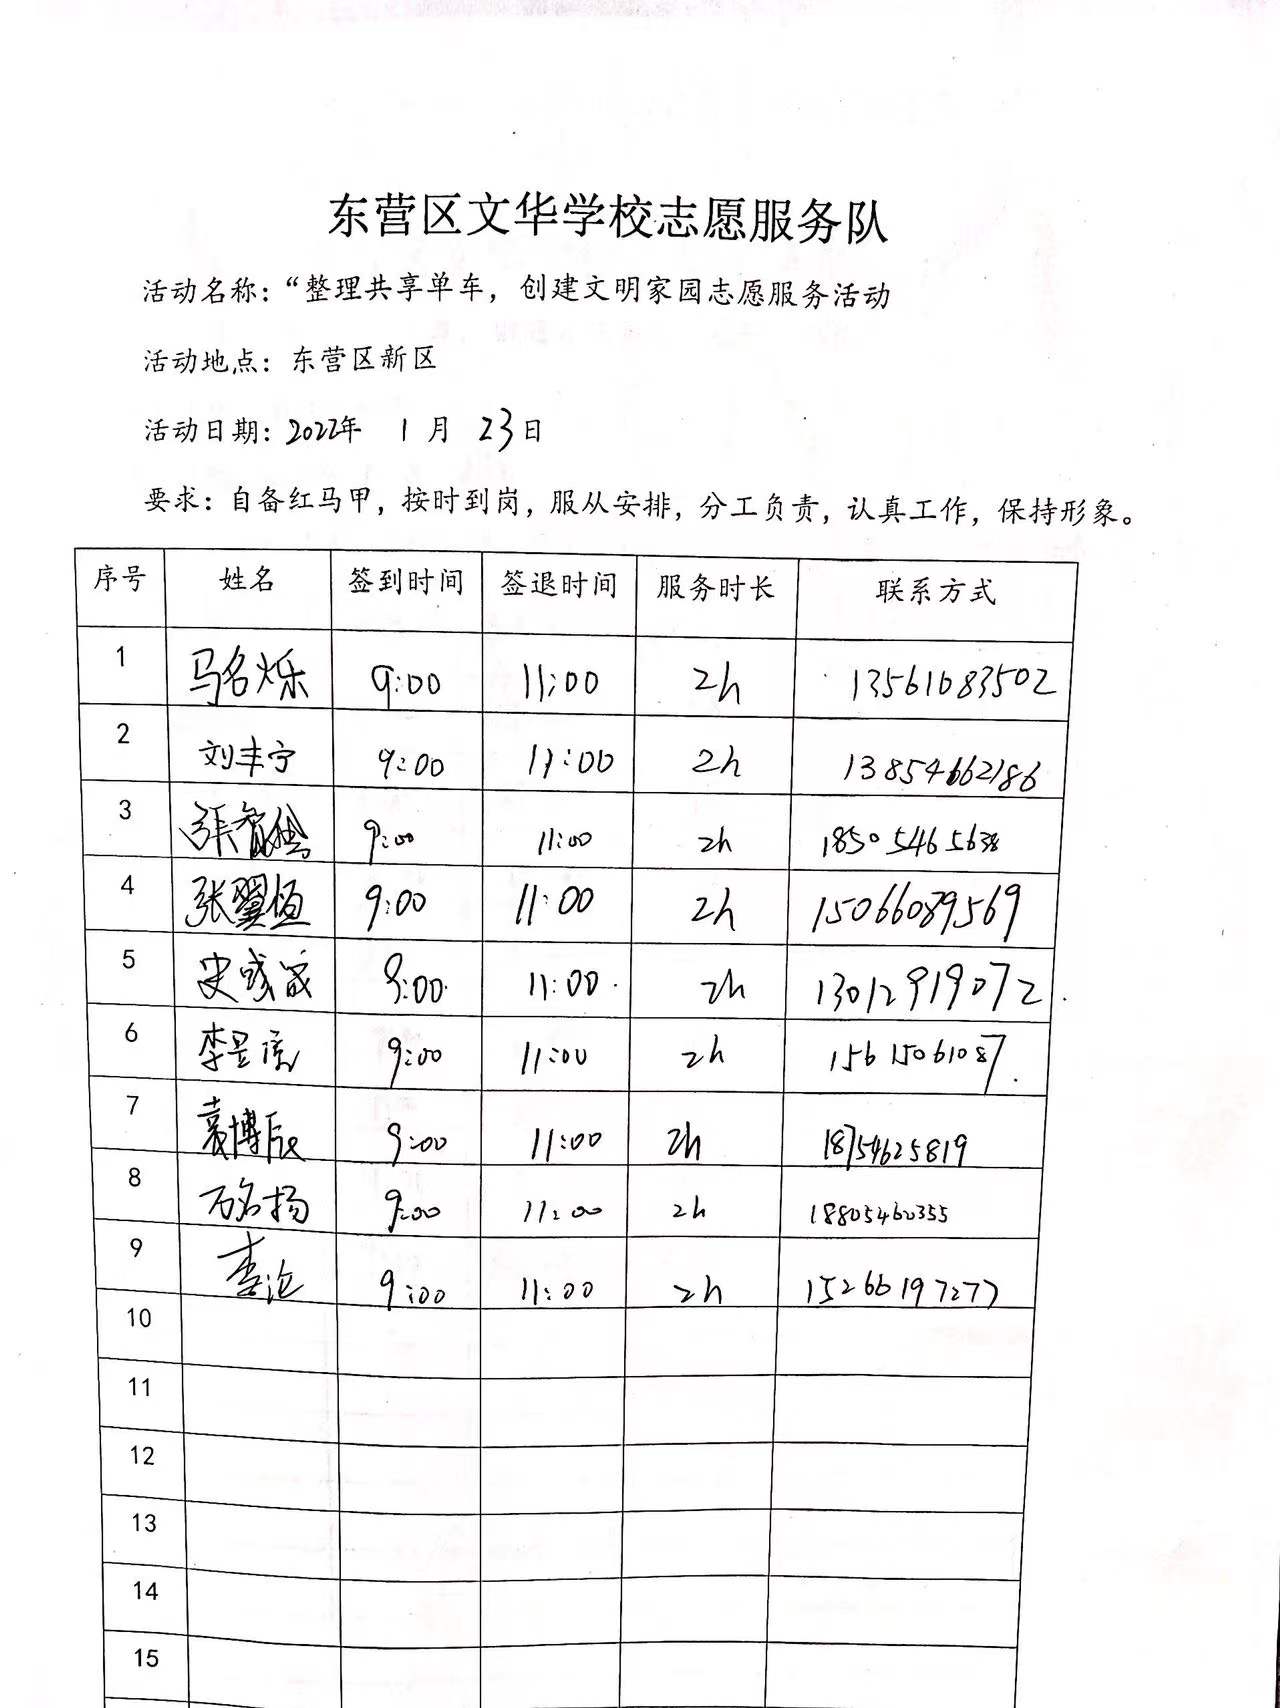 东营区文华学校志愿服务队
活动名称：“整理共享单车，创建文明家园志愿服务活动
活动地点：东营区新区
活动日期：2022年 1 月 23日
要求：自备红马甲，按时到岗，服从安排，分工负责，认真工作，保持形象。
序号 姓名 签到时间 签退时间 服务时长 联系方式
1 马名烁 9:00 11:00 2h 13561083502
2 刘丰宁 9:00 11:00 2h 13854662186
3 张 9:00 11:00 2h 18505465638
4 张翼恒 9:00 11:00 2h 15066089569
5 史 9:00 11:00 2h 13012919072
6 李昱 9:00 11:00 2h 15615061087
7 袁博辰 9:00 11:00 2h 18754625819
8 石名扬 9:00 11:00 2h 18805460355
9 李沦 9:00 11:00 2h 15266197277
10
11
12
13
14
15